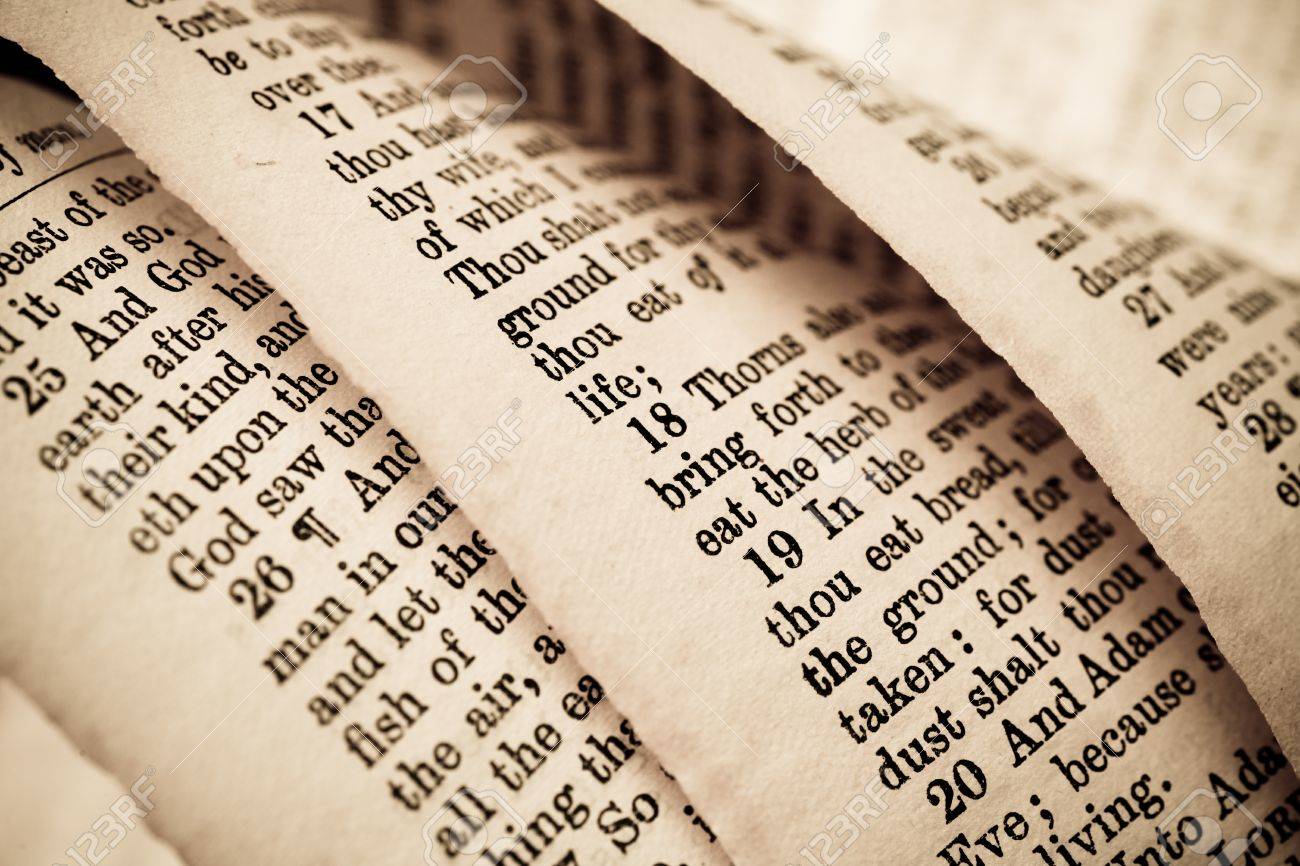 of
beast of the
it was so.
25 And God
earth after his
their kind, and
eth upon the
God saw tha
26 ¶ And
man in our
and let the
fish of the
the air, a
all the ea
hing tha
7 So
forth
be to thy
over thee
17 And
thou hast
thy wife, and
of which I
Thou shalt not
ground for thy
thou eat of it
life;
18 Thorns also
bring forth to thee
eat the herb of the
19 In the sweat
thou eat bread, till
the ground; for
taken: for dust
dust shalt thou
20 And Adam
Eve; because s
living.
Unto Ada
26
begat
and
daughters
27 And
were nine
years:
28
ei
123RF
123RF
123RF
123RF
123RF
123RF